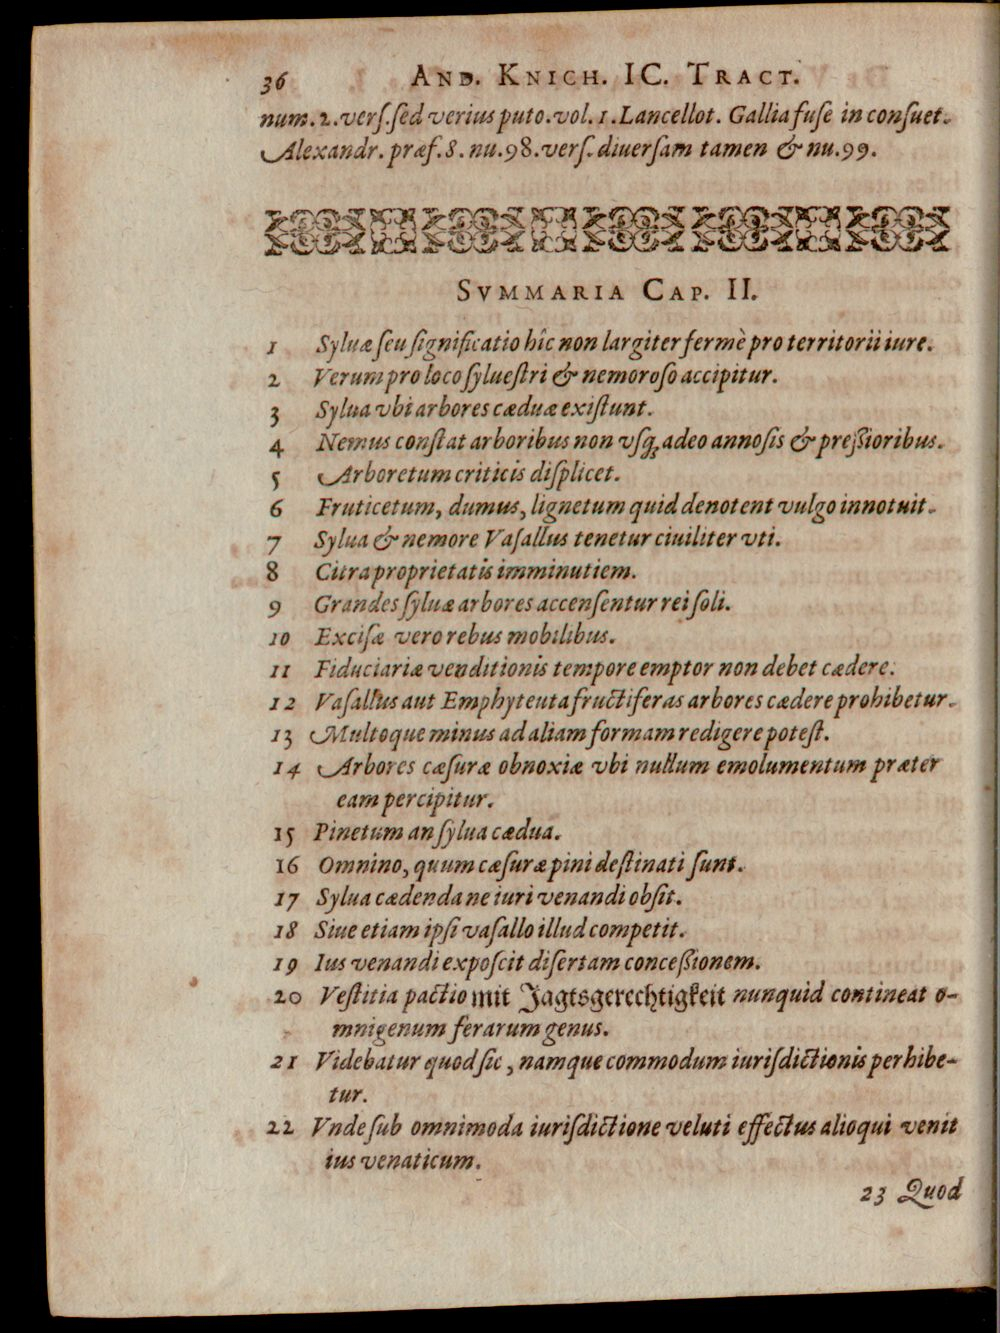 36 AND. KNICH. IC. TRACT.
num. 2. verſ. ſed verius puto. vol. 1. Lancellot. Gallia fuſe in conſuet.
Alexandr. præf. 8. nu. 98. verſ. diuerſam tamen & nu. 99.
SVMMARIA CAP. II.
1 Syluæ ſeu ſignificatio hîc non largiter fermè pro territorii iure.
2 Verum pro loco ſylueſtri & nemoroſo accipitur.
3 Sylua vbi arbores cæduæ exiſtunt.
4 Nemus conſtat arboribus non vſq; adeo annoſis & preſsioribus.
5 Arboretum criticis diſplicet.
6 Fruticetum, dumus, lignetum quid denotent vulgo innotuit.
7 Sylua & nemore Vaſallus tenetur ciuiliter vti.
8 Citra proprietatis imminutiem.
9 Grandes ſyluæ arbores accenſentur rei ſoli.
10 Exciſæ vero rebus mobilibus.
11 Fiduciariæ venditionis tempore emptor non debet cædere.
12 Vaſallus aut Emphyteuta fructiferas arbores cædere prohibetur.
13 Multoque minus ad aliam formam redigere poteſt.
14 Arbores cæſuræ obnoxiæ vbi nullum emolumentum præter
eam percipitur.
15 Pinetum an ſylua cædua.
16 Omnino, quum cæſuræ pini deſtinati ſunt.
17 Sylua cædenda ne iuri venandi obſit.
18 Siue etiam ipſi vaſallo illud competit.
19 Ius venandi expoſcit diſertam conceſsionem.
20 Veſtitia pactio mit Jagtsgerechtigkeit nunquid contineat o-
mnigenum ferarum genus.
21 Videbatur quod ſic, namque commodum iuriſdictionis perhibe-
tur.
22 Vnde ſub omnimoda iuriſdictione veluti effectus alioqui venit
ius venaticum.
23 Quod